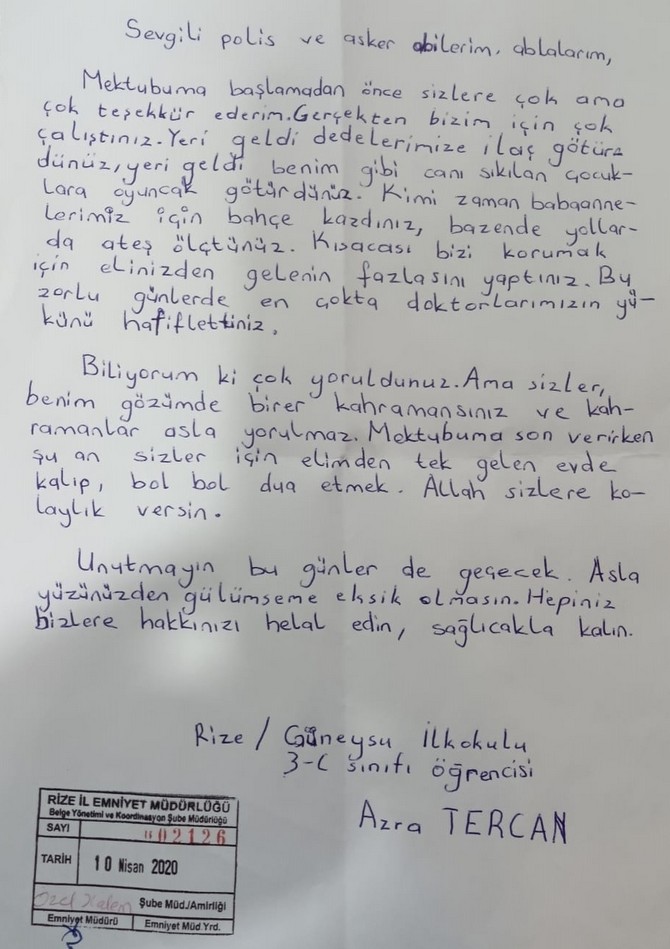 Sevgili polis ve asker abilerim, ablalarım,
Mektubuma başlamadan önce sizlere çok ama
çok teşekkür ederim. Gerçekten bizim için çok
çalıştınız. Yeri geldi dedelerimize ilaç götür-
dünüz, yeri geldi benim gibi canı sıkılan çocuk-
lara oyuncak götürdünüz. Kimi zaman babaanne-
lerimiz için bahçe kazdınız, bazende yollar-
da ateş ölçtünüz. Kısacası bizi korumak
için elinizden gelenin fazlasını yaptınız. Bu
zorlu günlerde en çokta doktorlarımızın yü-
künü hafiflettiniz.
Biliyorum ki çok yoruldunuz. Ama sizler,
benim gözümde birer kahramansınız ve kah-
ramanlar asla yorulmaz. Mektubuma son verirken
şu an sizler için elimden tek gelen evde
kalıp, bol bol dua etmek. Allah sizlere ko-
laylık versin.
Unutmayın bu günler de geçecek. Asla
yüzünüzden gülümseme eksik olmasın. Hepiniz
bizlere hakkınızı helal edin, sağlıcakla kalın.
Rize / Güneysu İlkokulu
3-C sınıfı öğrencisi
Azra TERCAN
RİZE İL EMNİYET MÜDÜRLÜĞÜ
Belge Yönetimi ve Koordinasyon Şube Müdürlüğü
SAYI 002126
TARİH 10 Nisan 2020
Özel Kalem Şube Müd./Amirliği
Emniyet Müdürü Emniyet Müd.Yrd.